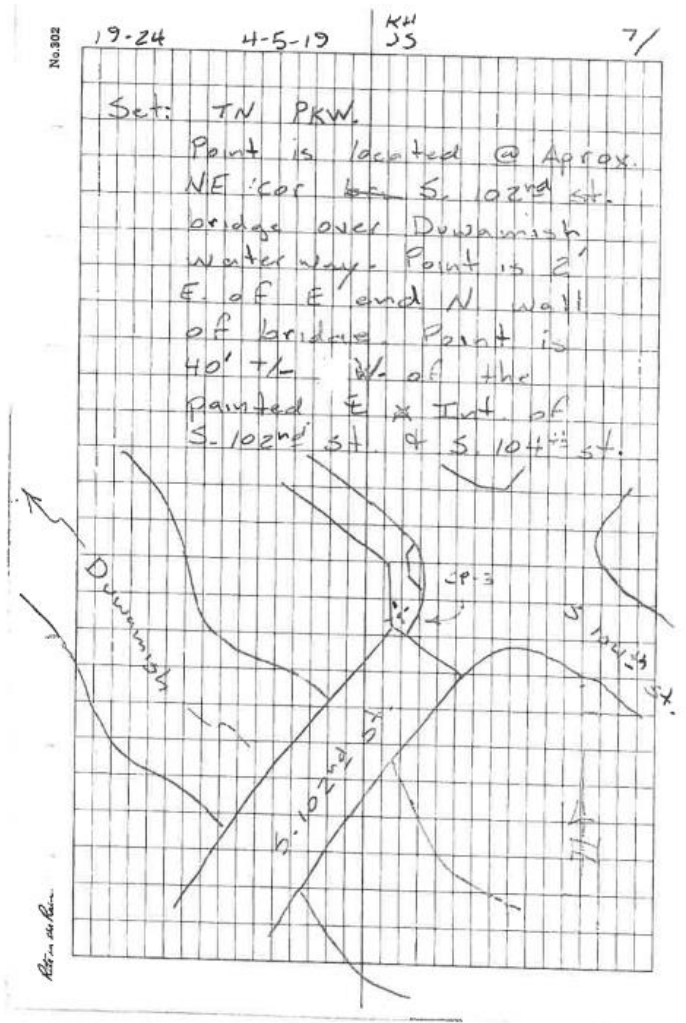 No.302
19-24 4-5-19 KH JS 7/
Set: TN PKW.
Point is located @ Aprox.
NE cor S. 102nd st.
bridge over Duwamish
waterway. Point is 2'
E. of E end N wall
of bridge. Point is
40' +/- W. of the
painted X Int. of
S. 102nd st. & S. 104th st.
CP-3
Duwamish
S 104th st.
S. 102nd St.
N
Rite in the Rain